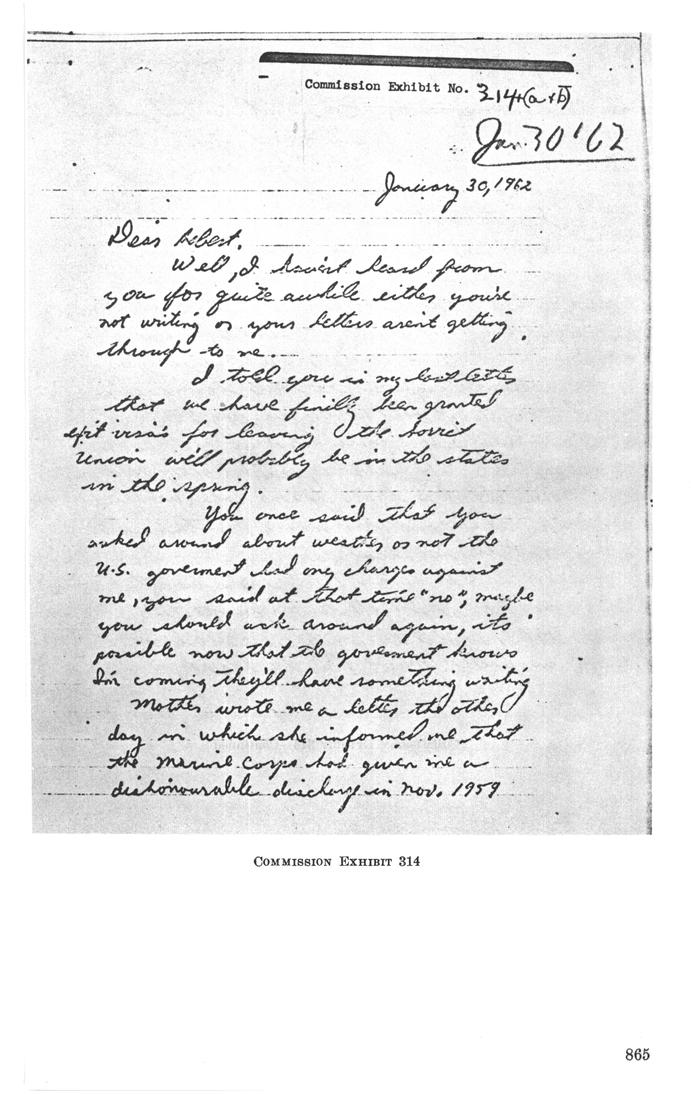 Commission Exhibit No. 314(a+b)
Jan. 30 '62
January 30, 1962
Dear Robert,
Well, I havent heard from
you for quite awhile either you're
not writing or your letters aren't getting
through to me.
I told you in my last letter
that we have finily been granted
exit visa's for leaving the Soviet
Union will probably be in the states
in the spring.
You once said that you
asked around about weather or not the
U.S. goverment had any charges against
me, you said at that time "no", maybe
you should ask around again, its
possible now that the goverment knows
I'm coming they'll have something waiting
Mother wrote me a letter the other
day in which she informed me that
the Marine Corps had given me a
dishonourable discharge in Nov. 1959
COMMISSION EXHIBIT 314
865